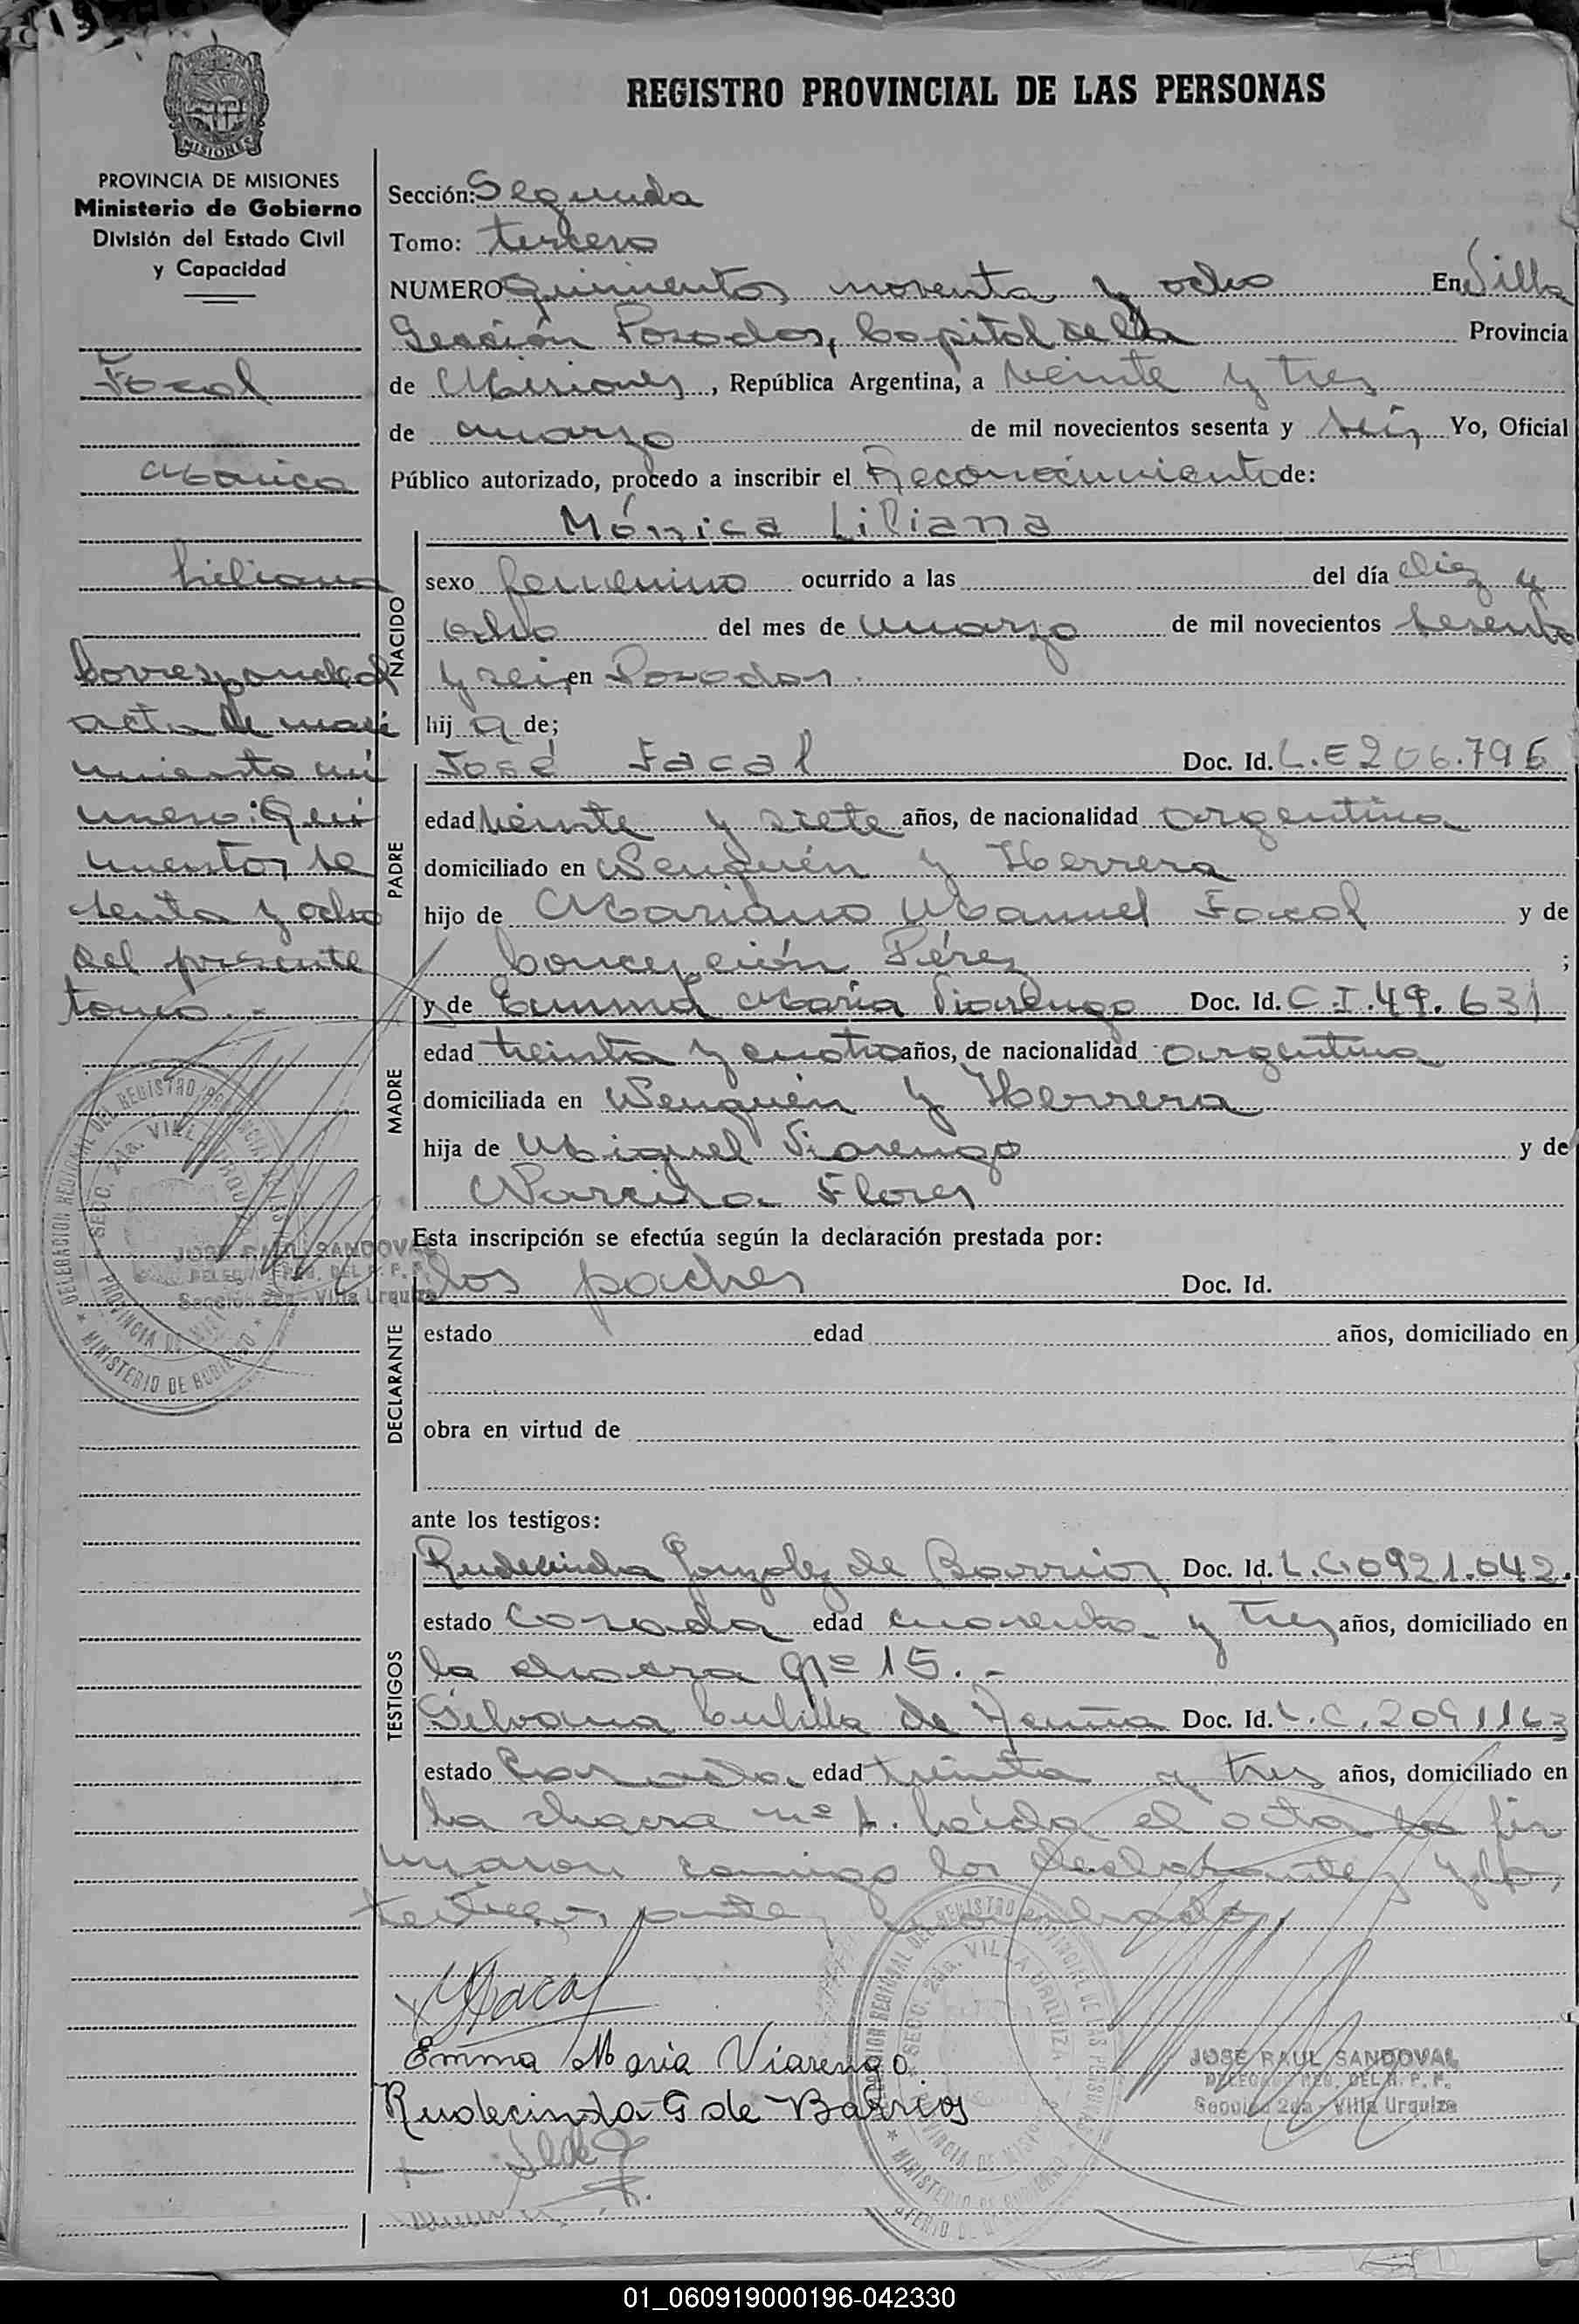 REGISTRO PROVINCIAL DE LAS PERSONAS
MISIONES
PROVINCIA DE MISIONES
Ministerio de Gobierno
División del Estado Civil
y Capacidad
Facal
Mónica
Liliana
Corresponde al
acta de naci
miento nú
mero: Qui
nientos se
tenta y ocho
del presente
tomo.-
Sección: Segunda
Tomo: tercero
NUMERO Quinientos noventa y ocho En Villa
Sección Posadas, Capital de la Provincia
de Misiones, República Argentina, a veinte y tres
de marzo de mil novecientos sesenta y seis Yo, Oficial
Público autorizado, procedo a inscribir el Reconocimiento de:
Mónica Liliana
NACIDO
sexo femenino ocurrido a las del día diez y
ocho del mes de marzo de mil novecientos sesenta
y seis en Posadas.
hija de;
PADRE
José Facal Doc. Id. L.E 206.796
edad veinte y siete años, de nacionalidad argentina
domiciliado en Neuquén y Herrera
hijo de Mariano Manuel Facal y de
Concepción Pérez ;
MADRE
y de Emma María Viarengo Doc. Id. C.I.49.631
edad treinta y cuatro años, de nacionalidad argentina
domiciliada en Neuquén y Herrera
hija de Miguel Viarengo y de
Narcisa Flores
Esta inscripción se efectúa según la declaración prestada por:
DECLARANTE
los padres Doc. Id.
estado edad años, domiciliado en
obra en virtud de
ante los testigos:
TESTIGOS
Rudecinda González de Barrios Doc. Id. L.C 0921.042.
estado casada edad cuarenta y tres años, domiciliado en
la chacra Nº 15.-
Silvana de Doc. Id. L.C. 2091163
estado Casada edad treinta y tres años, domiciliado en
la chacra nº 1. Leída el acta la fir
maron conmigo los declarantes y los
testigos antes nombrados.
Facal
Emma Maria Viarengo
Rudecinda G de Barrios
DELEGACION REGIONAL DEL REGISTRO PROVINCIAL DE LAS PERSONAS
SECC. 2da. VILLA URQUIZA
PROVINCIA DE MISIONES
MINISTERIO DE GOBIERNO
JOSE RAUL SANDOVAL
DELEGADO REG. DEL R. P. P.
Sección 2da - Villa Urquiza
JOSE RAUL SANDOVAL
DELEGADO REG. DEL R. P. P.
Sección 2da - Villa Urquiza
01_060919000196-042330